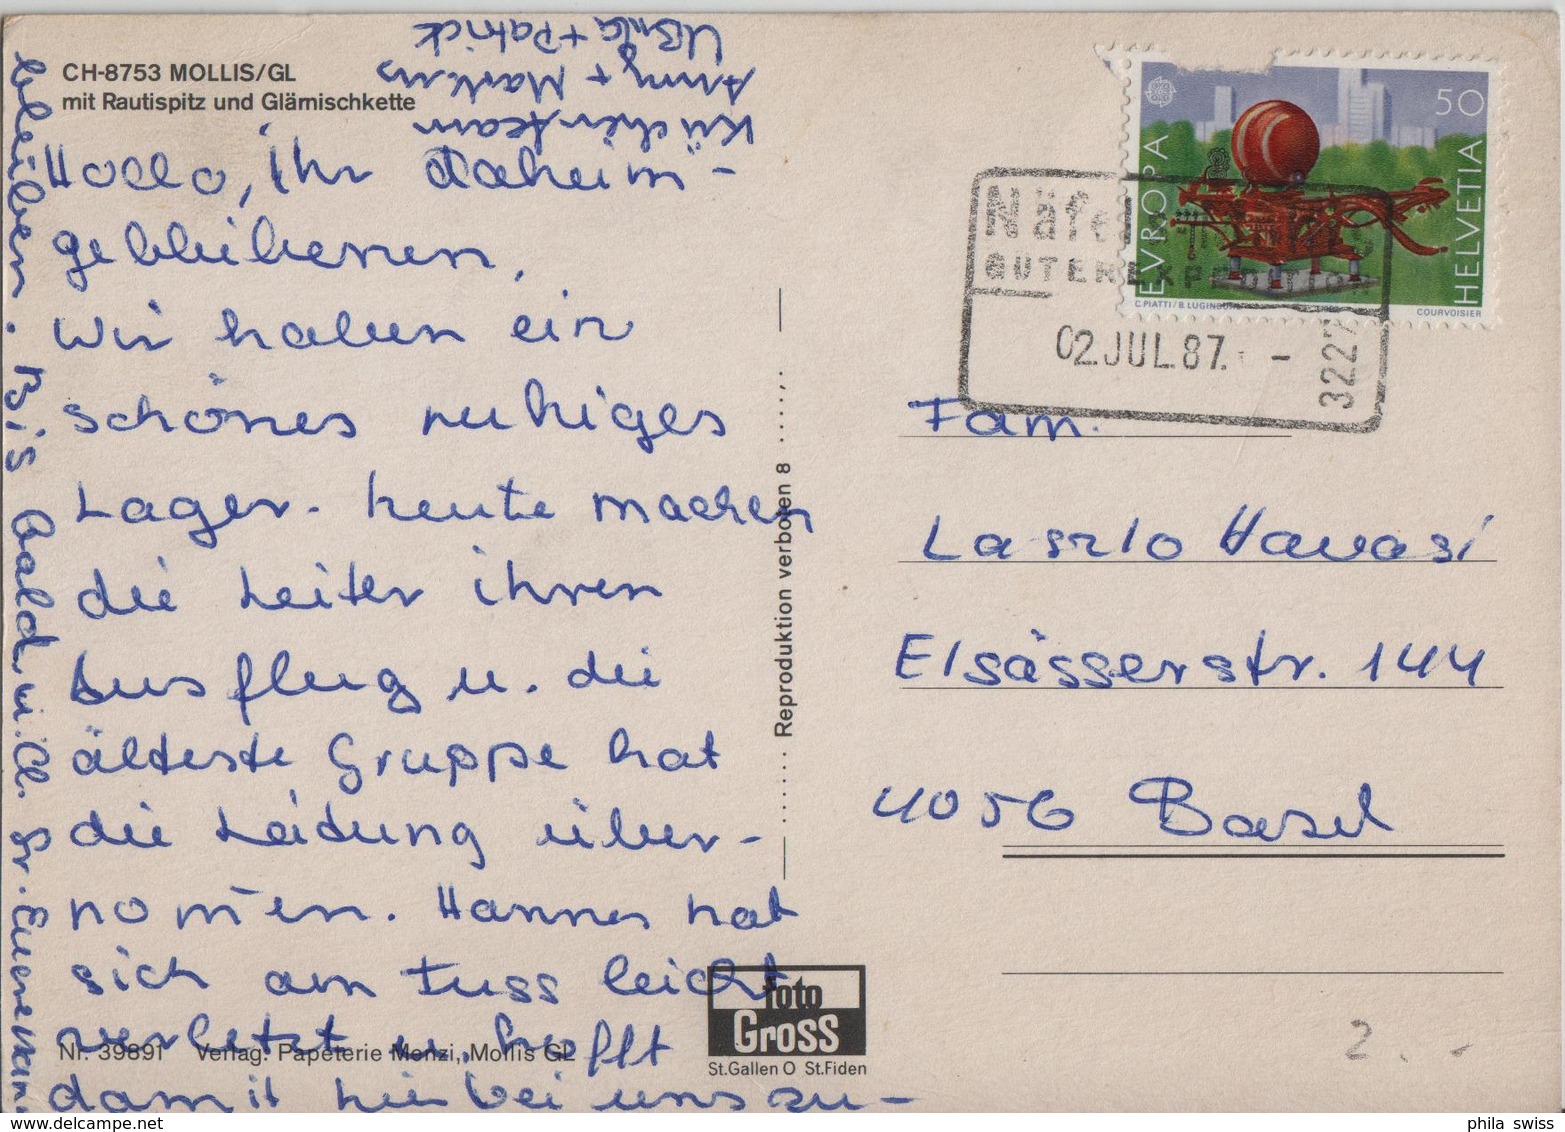 CH-8753 MOLLIS/GL
mit Rautispitz und Glärnischkette
Hallo, ihr daheim-
gebliebenen,
Wir haben ein
schönes ruhiges
Lager. heute machen
die Leiter ihren
Ausflug u. die
älteste Gruppe hat
die Leidung über-
nomen. Hannes hat
sich am Fuss leicht
verletzt u. hofft
damit hie bei uns zu-
bleiben. Bis bald
Küchenteam
Anny + Markus
Ursula + Patrick
Nr. 39891 Verlag: Papeterie Menzi, Mollis GL
Reproduktion verboten 8
foto
Gross
St.Gallen O St.Fiden
EUROPA
50
HELVETIA
C.PIATTI/B.LUGINBÜHL
COURVOISIER
Näfels-Mollis
GÜTEREXPEDITION
02.JUL.87. -
3227
Fam.
Laszlo Havasi
Elsässerstr. 144
4056 Basel
2.-
phila swiss